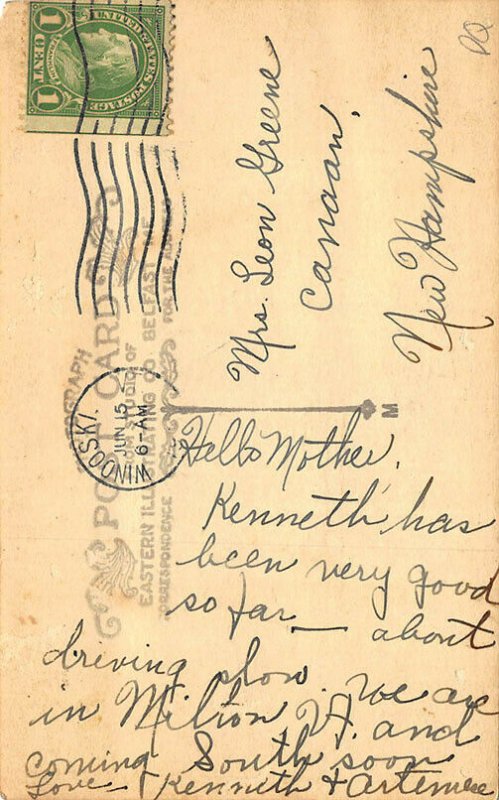 UNITED STATES POSTAGE
1 CENT 1
WINOOSKI.
JUN 15
6-AM
PHOTOGRAPH
POST CARD
FROM STUDIO OF
EASTERN ILLUSTRATING CO. BELFAST, ME.
CORRESPONDENCE
FOR THE ADDRESS
M
Mrs. Leon Greene
Canaan,
New Hampshire
Hello Mother,
Kenneth has
been very good
so far — about
driving slow. We are
in Milton Vt. and
coming South soon
Love - Kenneth + Artemese